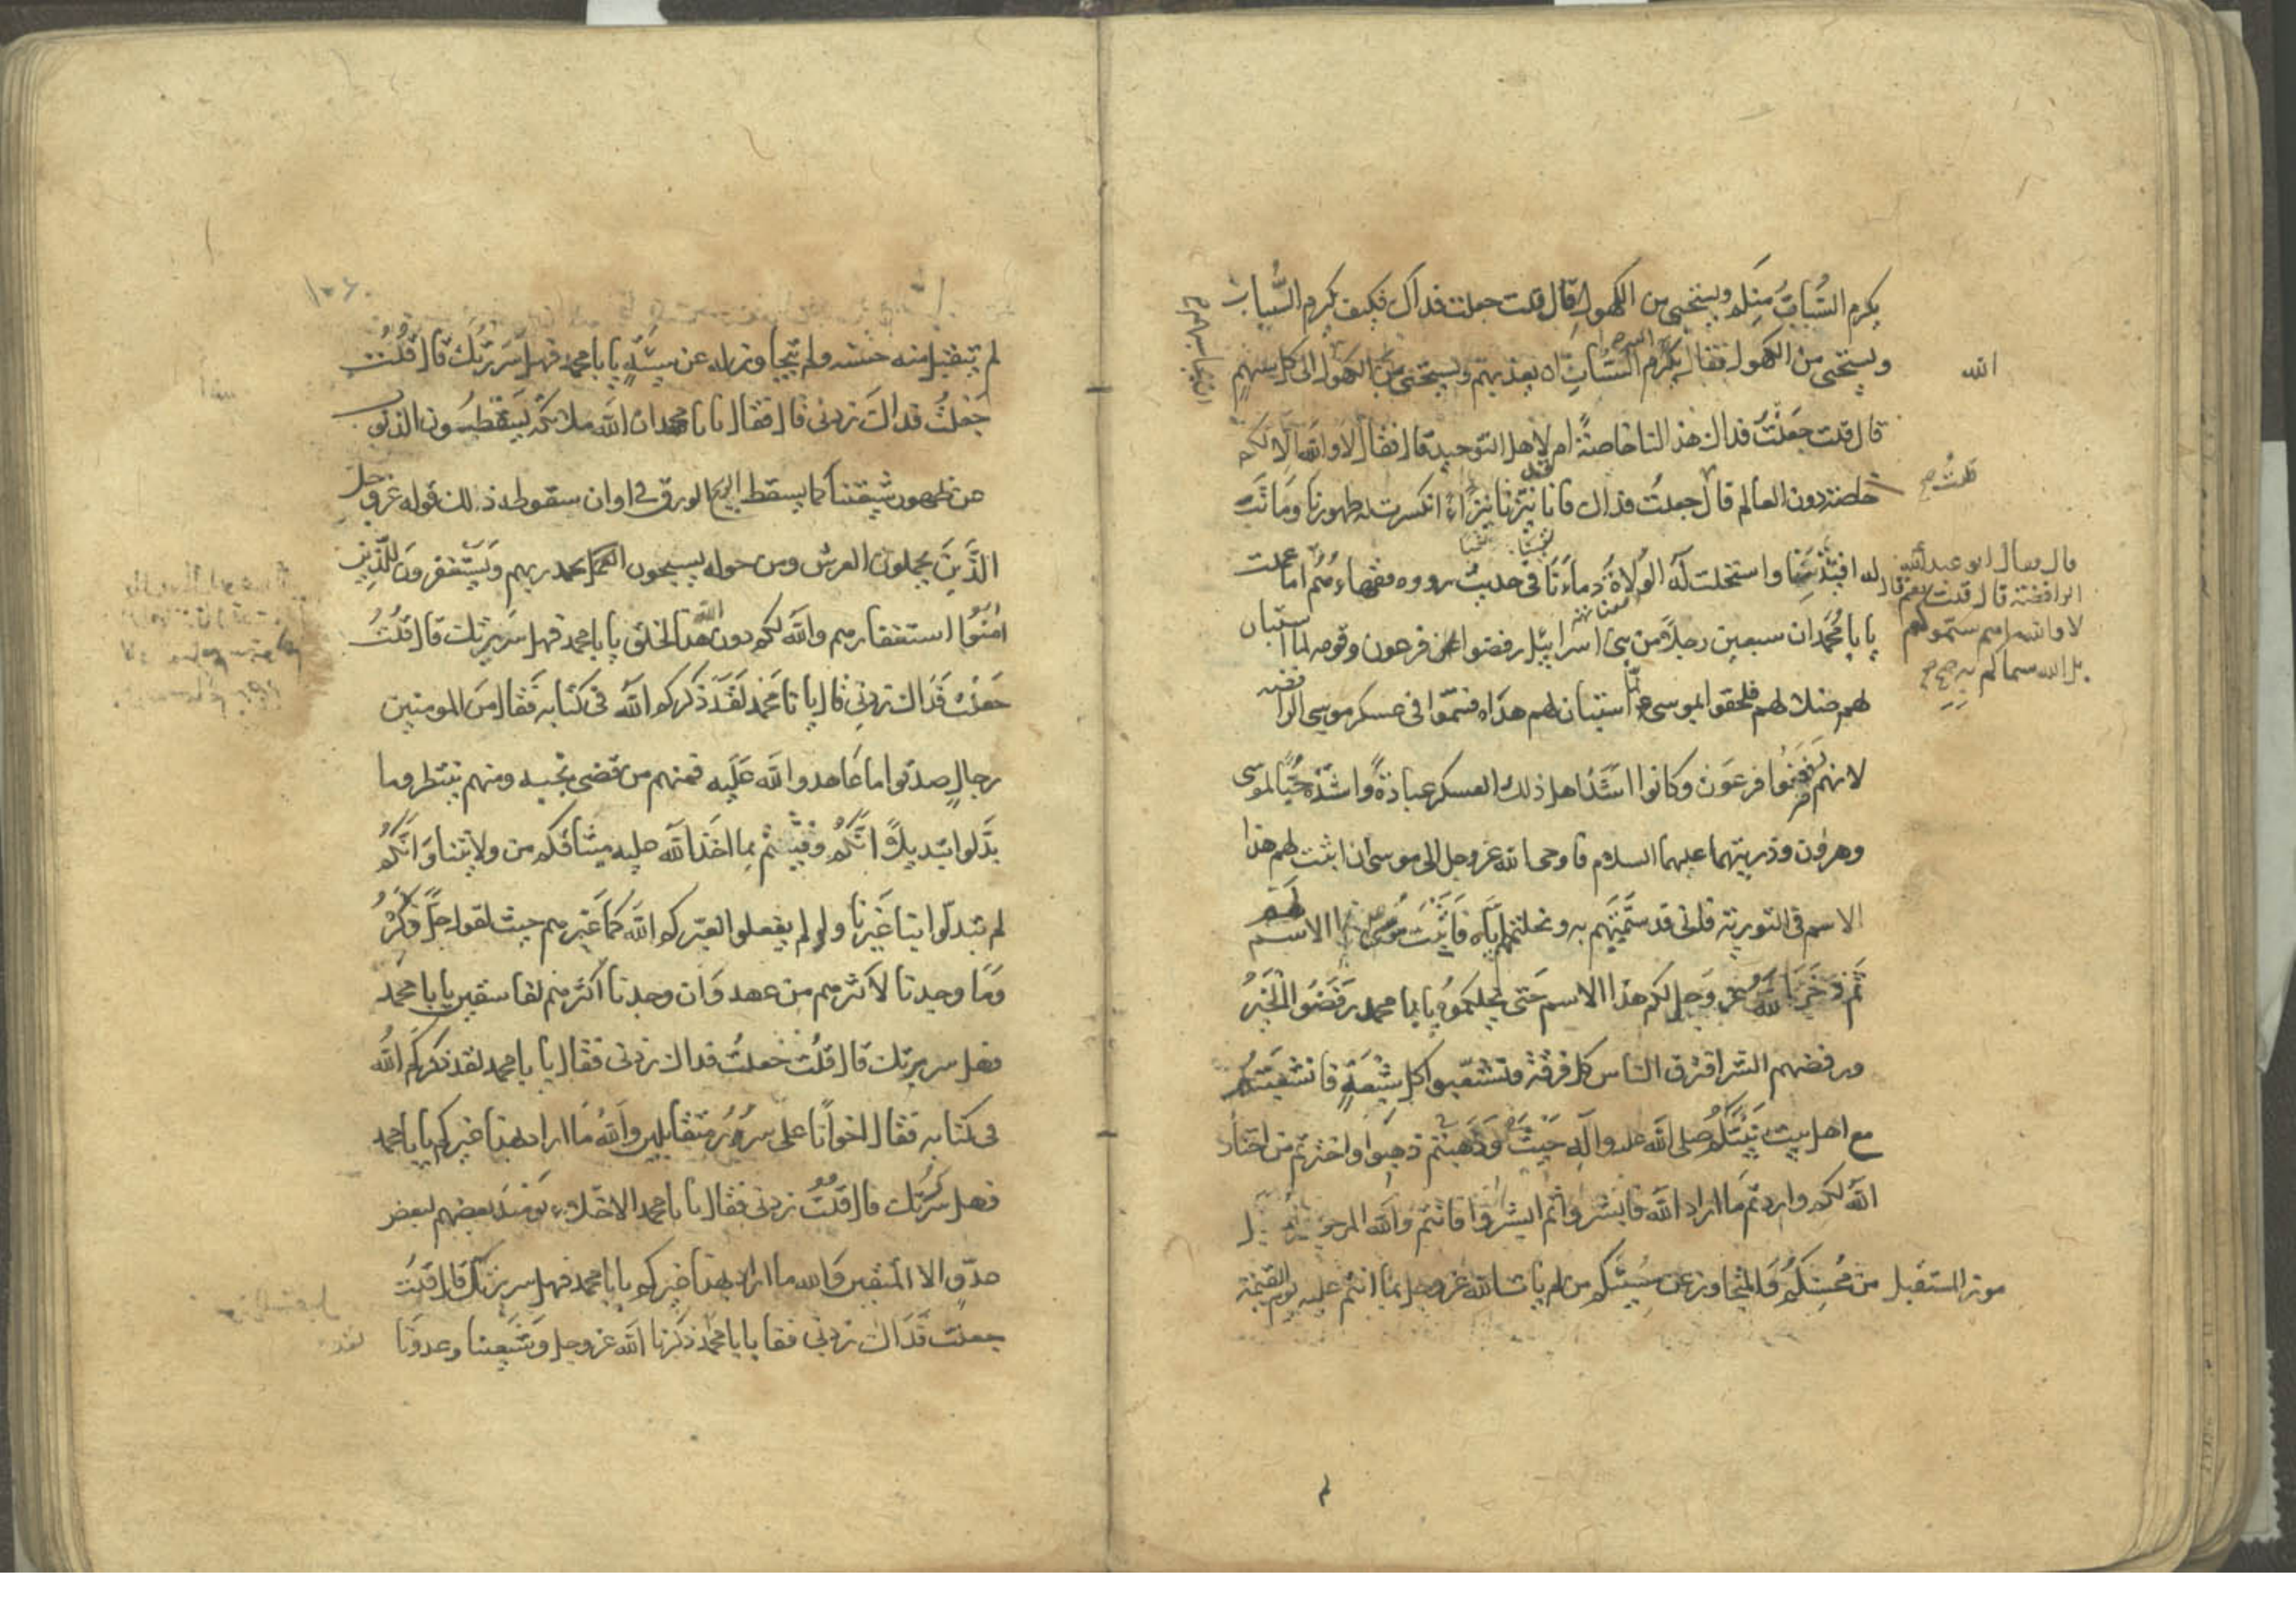 يكرم الشباب منكم ويستحيى من الكهول قال قلت جعلت فداك فكيف يكرم الشباب
ويستحيى من الكهول فقال يكرم الشباب ان يعذبهم ويستحيى من الكهول
الله
قال قلت جعلت فداك هذا لنا خاصة ام لاهل التوحيد قال فقال لا والله الا لكم
خاصة دون العالم قال جعلت فداك فانا نبزنا نبزاً انكسرت له ظهورنا وماتت
قلت صح
له افئدتنا واستحلت له الولاة دماءنا في حديث رووه فقهاءهم
قال فقال ابو عبد الله
الرافضة قال قلت نعم قال
لا والله ما هم سموكم
بل الله سماكم به صح
يا با محمد ان سبعين رجلا من بنى اسرائيل رفضوا فرعون وقومه لما استبان
لهم ضلالهم فلحقوا بموسى لما استبان لهم هداه فسموا في عسكر موسى الرافضه
لانهم رفضوا فرعون وكانوا اشد اهل ذلك العسكر عبادة واشده حبا لموسى
وهرون وذريتهما عليهما السلام فاوحى الله عز وجل الى موسى ان اثبت لهم هذا
الاسم في التورية فانى قد سميتهم به ونحلتهم اياه فاثبت موسى الاسم لهم
ثم ذخر الله عز وجل لكم هذا الاسم حتى نحلكموه يا با محمد رفضوا الخير
ورفضتم الشر افترق الناس كل فرقة وتشعبوا كل شعبة فانشعبتم
مع اهل بيت نبيكم صلى الله عليه وآله وذهبتم حيث ذهبوا واخترتم من اختار
الله لكم واردتم ما اراد الله فابشروا ثم ابشروا فانتم والله المرحومون المتقبل
من محسنكم والمتجاوز عن مسيئكم من لم يات الله عز وجل بما انتم عليه يوم القيمة
لم يتقبل منه حسنه ولم يتجاوز له عن سيئة يا با محمد فهل سررتك قال قلت
جعلت فداك زدنى قال فقال يا با محمد ان لله ملائكة يسقطون الذنوب
عن ظهور شيعتنا كما يسقط الريح الورق في اوان سقوطه ذلك قوله عز وجل
الذين يحملون العرش ومن حوله يسبحون بحمد ربهم ويستغفرون للذين
امنوا استغفارهم والله لكم دون هذا الخلق يا با محمد فهل سررتك قال قلت
جعلت فداك زدنى قال يا با محمد لقد ذكركم الله في كتابه فقال من المومنين
رجال صدقوا ما عاهدوا الله عليه فمنهم من قضى نحبه ومنهم ينتظر وما
بدلوا تبديلا انكم وفيتم بما اخذ الله عليه ميثاقكم من ولايتنا وانكم
لم تبدلوا بنا غيرنا ولو لم يفعلوا لعيركم الله كما عيرهم حيث يقول جل ذكره
وما وجدنا لاكثرهم من عهد وان وجدنا اكثرهم لفاسقين يا با محمد
فهل سررتك قال قلت جعلت فداك زدنى فقال يا با محمد لقد ذكركم الله
في كتابه فقال اخوانا على سرر متقابلين والله ما اراد بهذا غيركم يا با محمد
فهل سررتك قال قلت زدنى فقال يا با محمد الاخلاء يومئذ بعضهم لبعض
عدو الا المتقين والله ما اراد بهذا غيركم يا با محمد فهل سررتك قال قلت
جعلت فداك زدنى فقا يا با محمد ذكرنا الله عز وجل وشيعتنا وعدونا